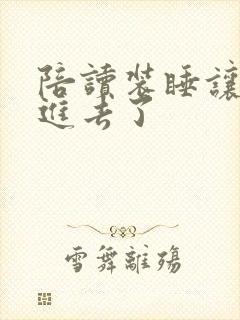 陪讀裝睡讓
進去了
雪舞離殤